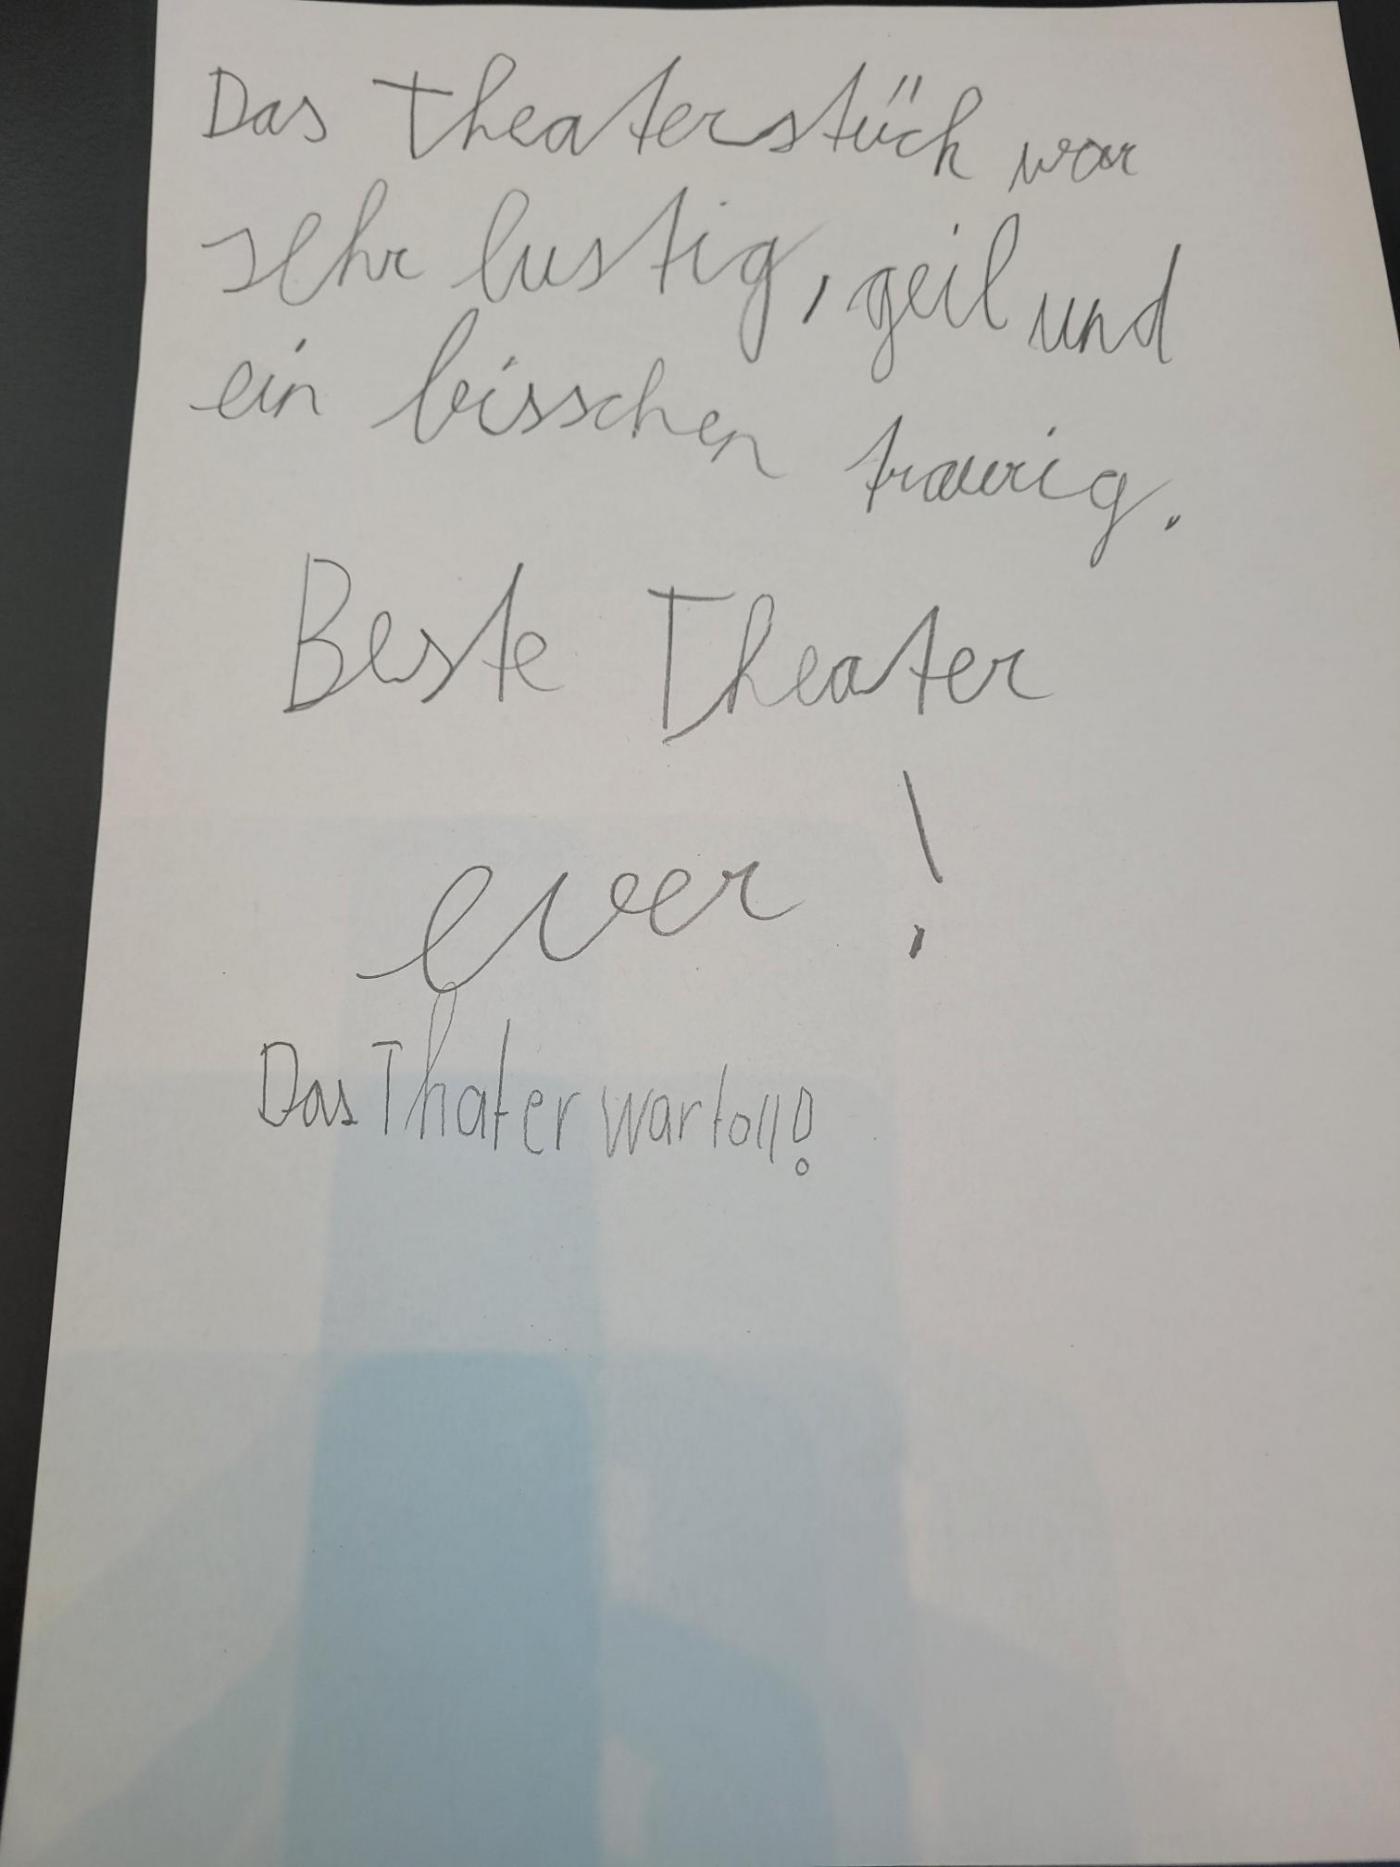 Das Theaterstück war
sehr lustig, geil und
ein bisschen traurig.
Beste Theater
ever!
Das Thater war toll!